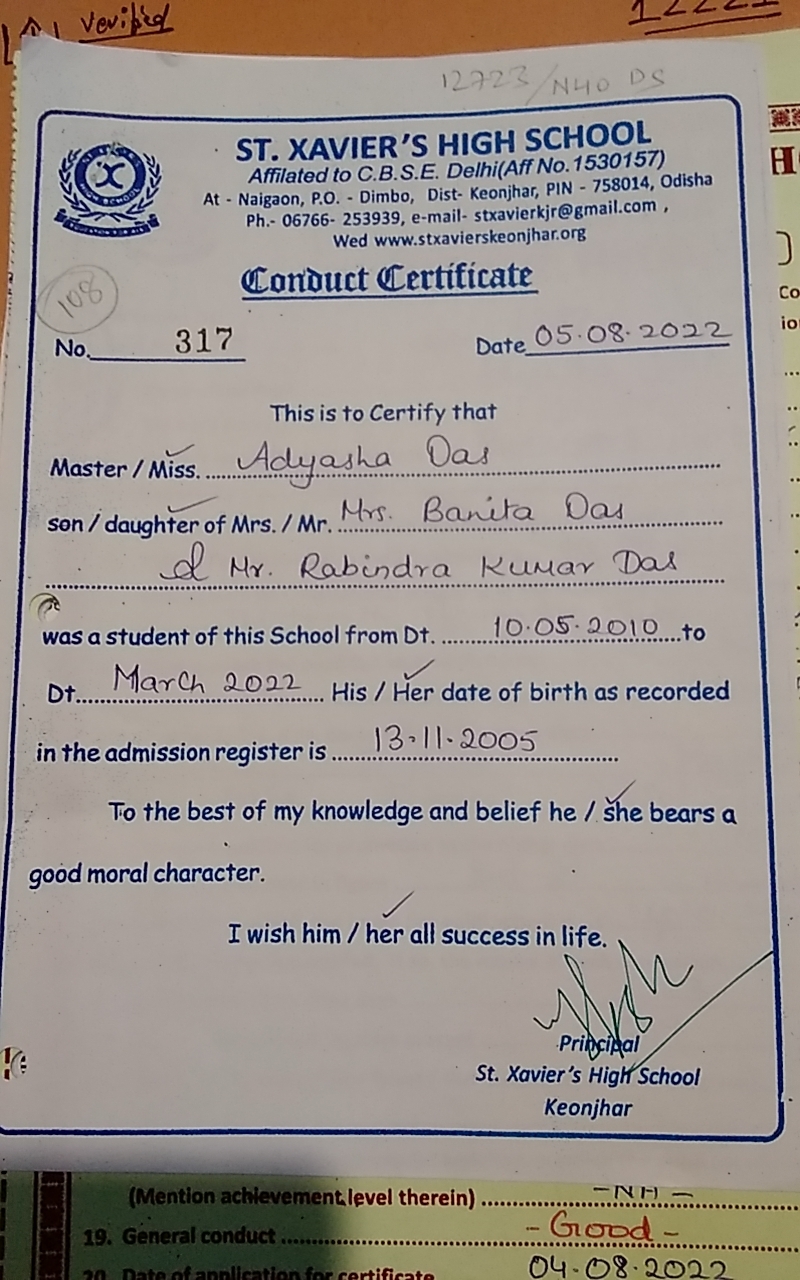 verified
12221
12723/N40 DS
ST. XAVIER'S HIGH SCHOOL
Affilated to C.B.S.E. Delhi(Aff No. 1530157)
At - Naigaon, P.O. - Dimbo, Dist- Keonjhar, PIN - 758014, Odisha
Ph.- 06766- 253939, e-mail- stxavierkjr@gmail.com ,
Wed www.stxavierskeonjhar.org
Conduct Certificate
108
No. 317 Date 05.08.2022
This is to Certify that
Master / Miss. Adyasha Das
son / daughter of Mrs. / Mr. Mrs. Banita Das
& Mr. Rabindra Kumar Das
was a student of this School from Dt. 10.05.2010 to
Dt. March 2022 His / Her date of birth as recorded
in the admission register is 13.11.2005
To the best of my knowledge and belief he / she bears a
good moral character.
I wish him / her all success in life.
Principal
St. Xavier's High School
Keonjhar
(Mention achievement level therein) -NA-
19. General conduct -Good-
20. Date of application for certificate 04.08.2022